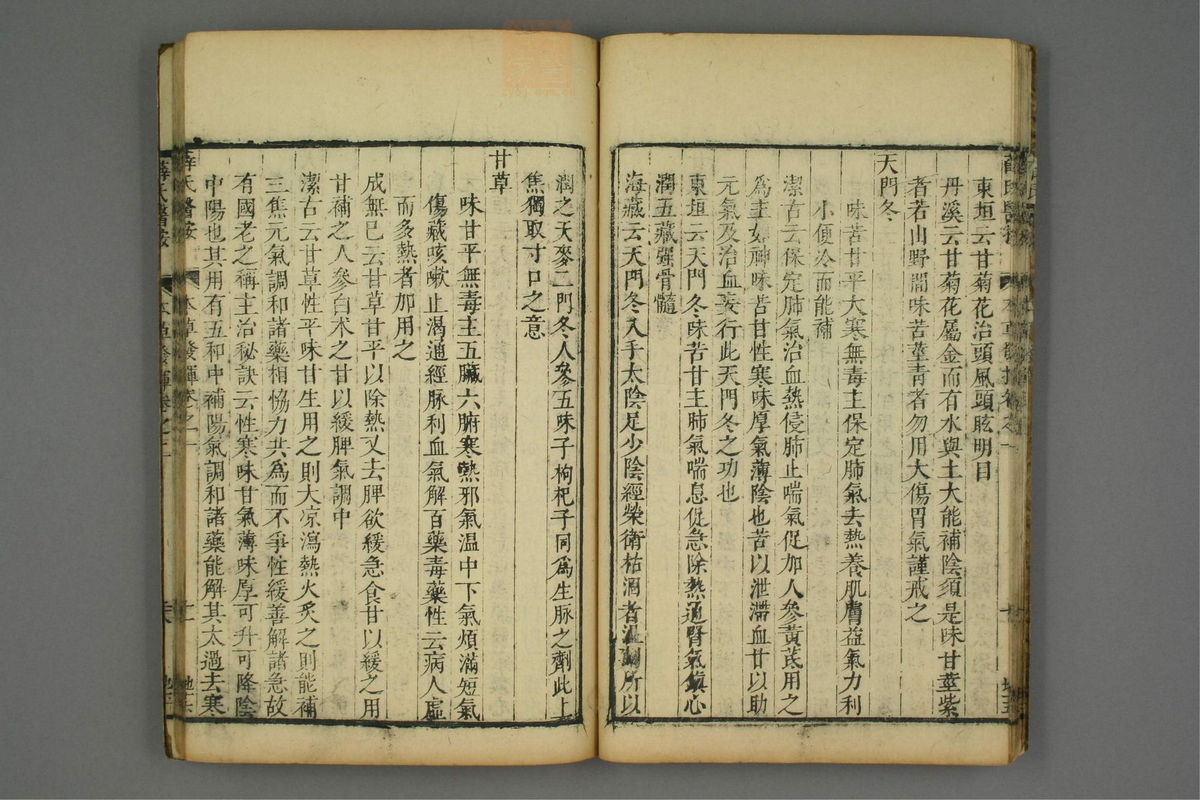 東垣云甘菊花治頭風頭眩明目
丹溪云甘菊花屬金而有水與土大能補陰須是味甘莖紫
者若山野間味苦莖青者勿用大傷胃氣謹戒之
天門冬
味苦甘平大寒無毒主保定肺氣去熱養肌膚益氣力利
小便冷而能補
潔古云保定肺氣治血熱侵肺止喘氣促加人參黃芪用之
爲主如神味苦甘性寒味厚氣薄陰也苦以泄滯血甘以助
元氣及治血妄行此天門冬之功也
東垣云天門冬味苦甘主肺氣喘息促急除熱通腎氣鎮心
潤五藏彊骨髓
海藏云天門冬入手太陰足少陰經榮衛枯涸者溫劑所以
潤之天麥二門冬人參五味子枸杞子同爲生脉之劑此上
焦獨取寸口之意
甘草
味甘平無毒主五臟六腑寒熱邪氣温中下氣煩滿短氣
傷藏咳嗽止渴通經脉利血氣解百藥毒藥性云病人虛
而多熱者加用之
成無已云甘草甘平以除熱又去脾欲緩急食甘以緩之用
甘補之人參白术之甘以緩脾氣調中
潔古云甘草性平味甘生用之則大凉瀉熱火炙之則能補
三焦元氣調和諸藥相恊力共爲而不爭性緩善解諸急故
有國老之稱主治秘訣云性寒味甘氣薄味厚可升可降陰
中陽也其用有五和中補陽氣調和諸藥能解其太過去寒
薛氏醫按 本草發揮卷之一